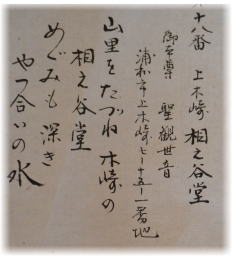 十八番 上木崎 相之谷堂
御本尊 聖觀世音
浦和市上木崎七ー十五ー一番地
山里をたづね木崎の
相之谷堂
めぐみも深き
やつ合いの水